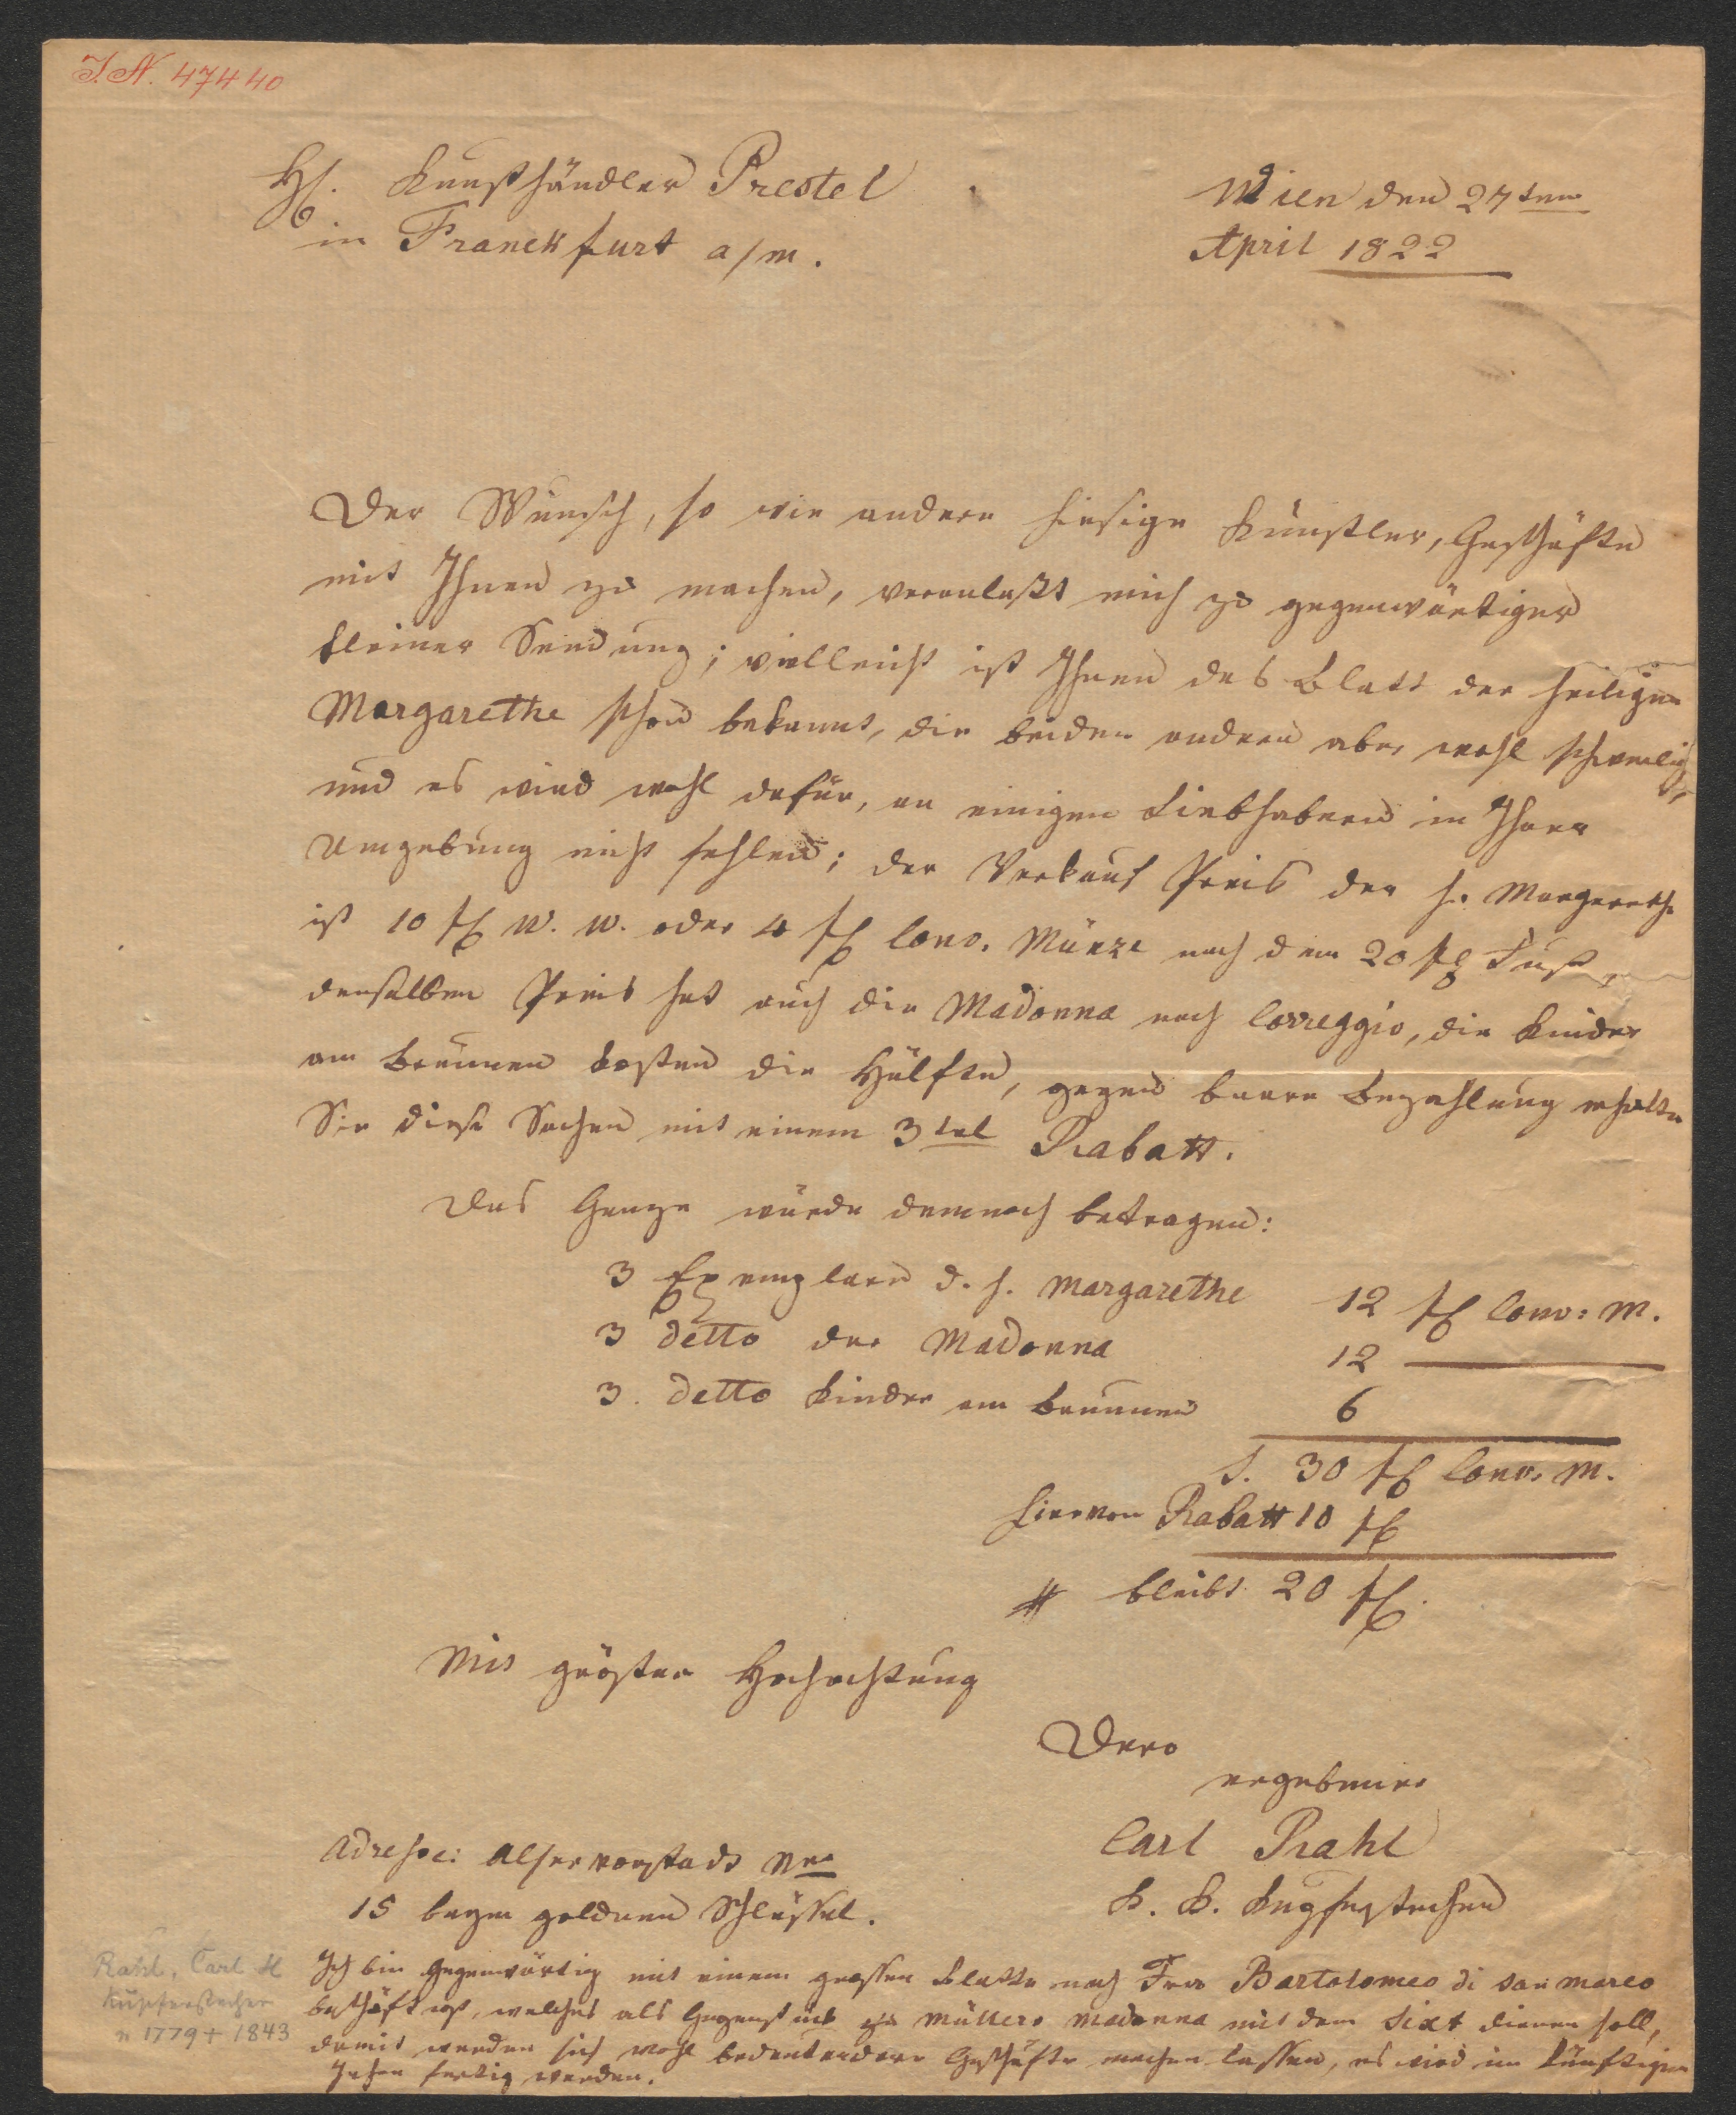 I. N. 47440
H. Kunsthändler Prestel
in Franckfurt a/m.
Wien den 27ten
April 1822
Der Wunsch, so wie andere hiesige Künstler, Geschäfte
mit Ihnen zu machen, veranlaßt mich zu gegenwärtiger
kleiner Sendung; vielleicht ist Ihnen das Blatt der heiligen
Margarethe schon bekannt, die beiden andern aber wohl schwerlich
und es wird wohl dafür, an einigen Liebhabern in Ihrer
Umgebung nicht fehlen; der Verkauf Preis der h. Margarethe
ist 10 fl W. W. oder 4 fl Conv. Münze nach dem 20 fl Fuß,
denselben Preis hat auch die Madonna nach Correggio, die Kinder
am Brunnen kosten die Hälfte, gegen baare Bezahlung erhalten
Sie diese Sachen mit einem 3tel Rabatt.
Das Ganze würde demnach betragen:
3 Exemplare d. h. Margarethe 12 fl Conv: M.
3 detto der Madonna 12
3. detto Kinder am Brunnen 6
S. 30 fl Conv. M.
hiervon Rabatt 10 fl
bleibt 20 fl.
Mit größter Hochachtung
Dero
ergebener
Carl Rahl
K. K. Kupferstecher
Adresse: Alservorstadt Nro
15 beym goldnen Schlüssel.
Ich bin gegenwärtig mit einem grossen Blatte nach Fra Bartolomeo di san marco
beschäftigt, welches als Gegenstück zu Müllers Madonna mit dem Sixt dienen soll,
damit werden sich wohl bedeutendere Geschäfte machen lassen, es wird im künftigen
Jahre fertig werden.
Rahl, Carl H
Kupferstecher
n 1779 + 1843